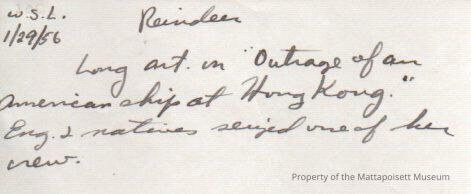 W.S.L. Reindeer
1/29/56
Long art. in "Outrage of an
American ship at Hong Kong."
Eng. & natives seized one of her
crew.
Property of the Mattapoisett Museum